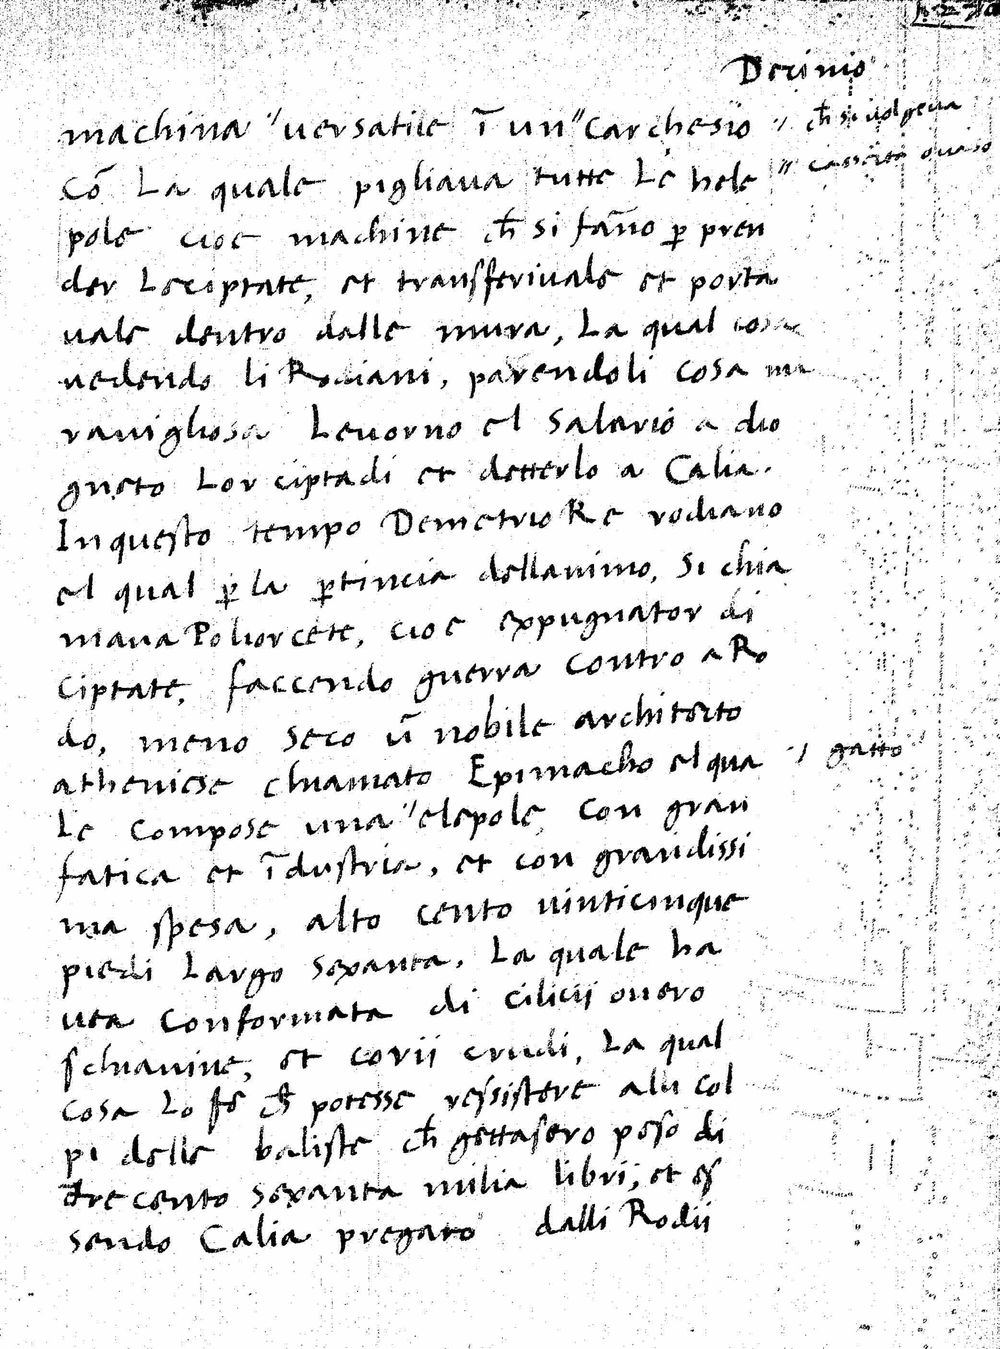 Decimo
machina "versatile ī un" Carchesio " ch̄ si volgeua
Cō La quale pigliaua tutte Le hele " cassetta ouaso
pole cioe machine ch̄ si fāno p̱ pren
der Leciptate, et transferiuale et porta
uale dentro dalle mura, La qual cosa
uedendo li Rodiani, parendoli cosa mi
rauigliosa Leuorno el Salario a dio
gneto Lor ciptadi et detterlo a Calia.
In questo tempo Demetrio Re rodiano
el qual p̱ la p̱tincia dellanimo, Si chia
maua Poliorcete, cioe expugnator di
Ciptate, faccendo guerra Contro a Ro
do, meno Seco ū nobile architecto
atheniese chiamato Epimacho elqua " gatto
Le Compose una "elepole, Con gran
fatica et īdustria, et con grandissi
ma spesa, alto cento uinticinque
piedi Largo Sexanta, La quale ha
uea Conformata di Cilicii ouero
schiauine, et corii crudi, La qual
Cosa Lo fe ch̄ potesse ressistere alli Col
pi delle baliste ch̄ gettasero peso di
tre cento Sexanta milia libri; et es
sendo Calia pregato dalli Rodii